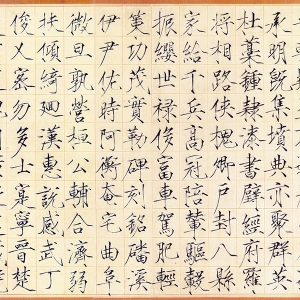 承明既集墳典亦聚群英
杜稾鍾隸漆書壁經府羅
將相路俠槐卿戶封八縣
家給千兵高冠陪輦驅轂
振纓世禄侈富車駕肥輕
策功茂實勒碑刻銘磻溪
伊尹佐時阿衡奄宅曲阜
微旦孰營桓公輔合濟弱
扶傾綺迴漢惠說感武丁
俊乂密勿多士寔寧晉楚